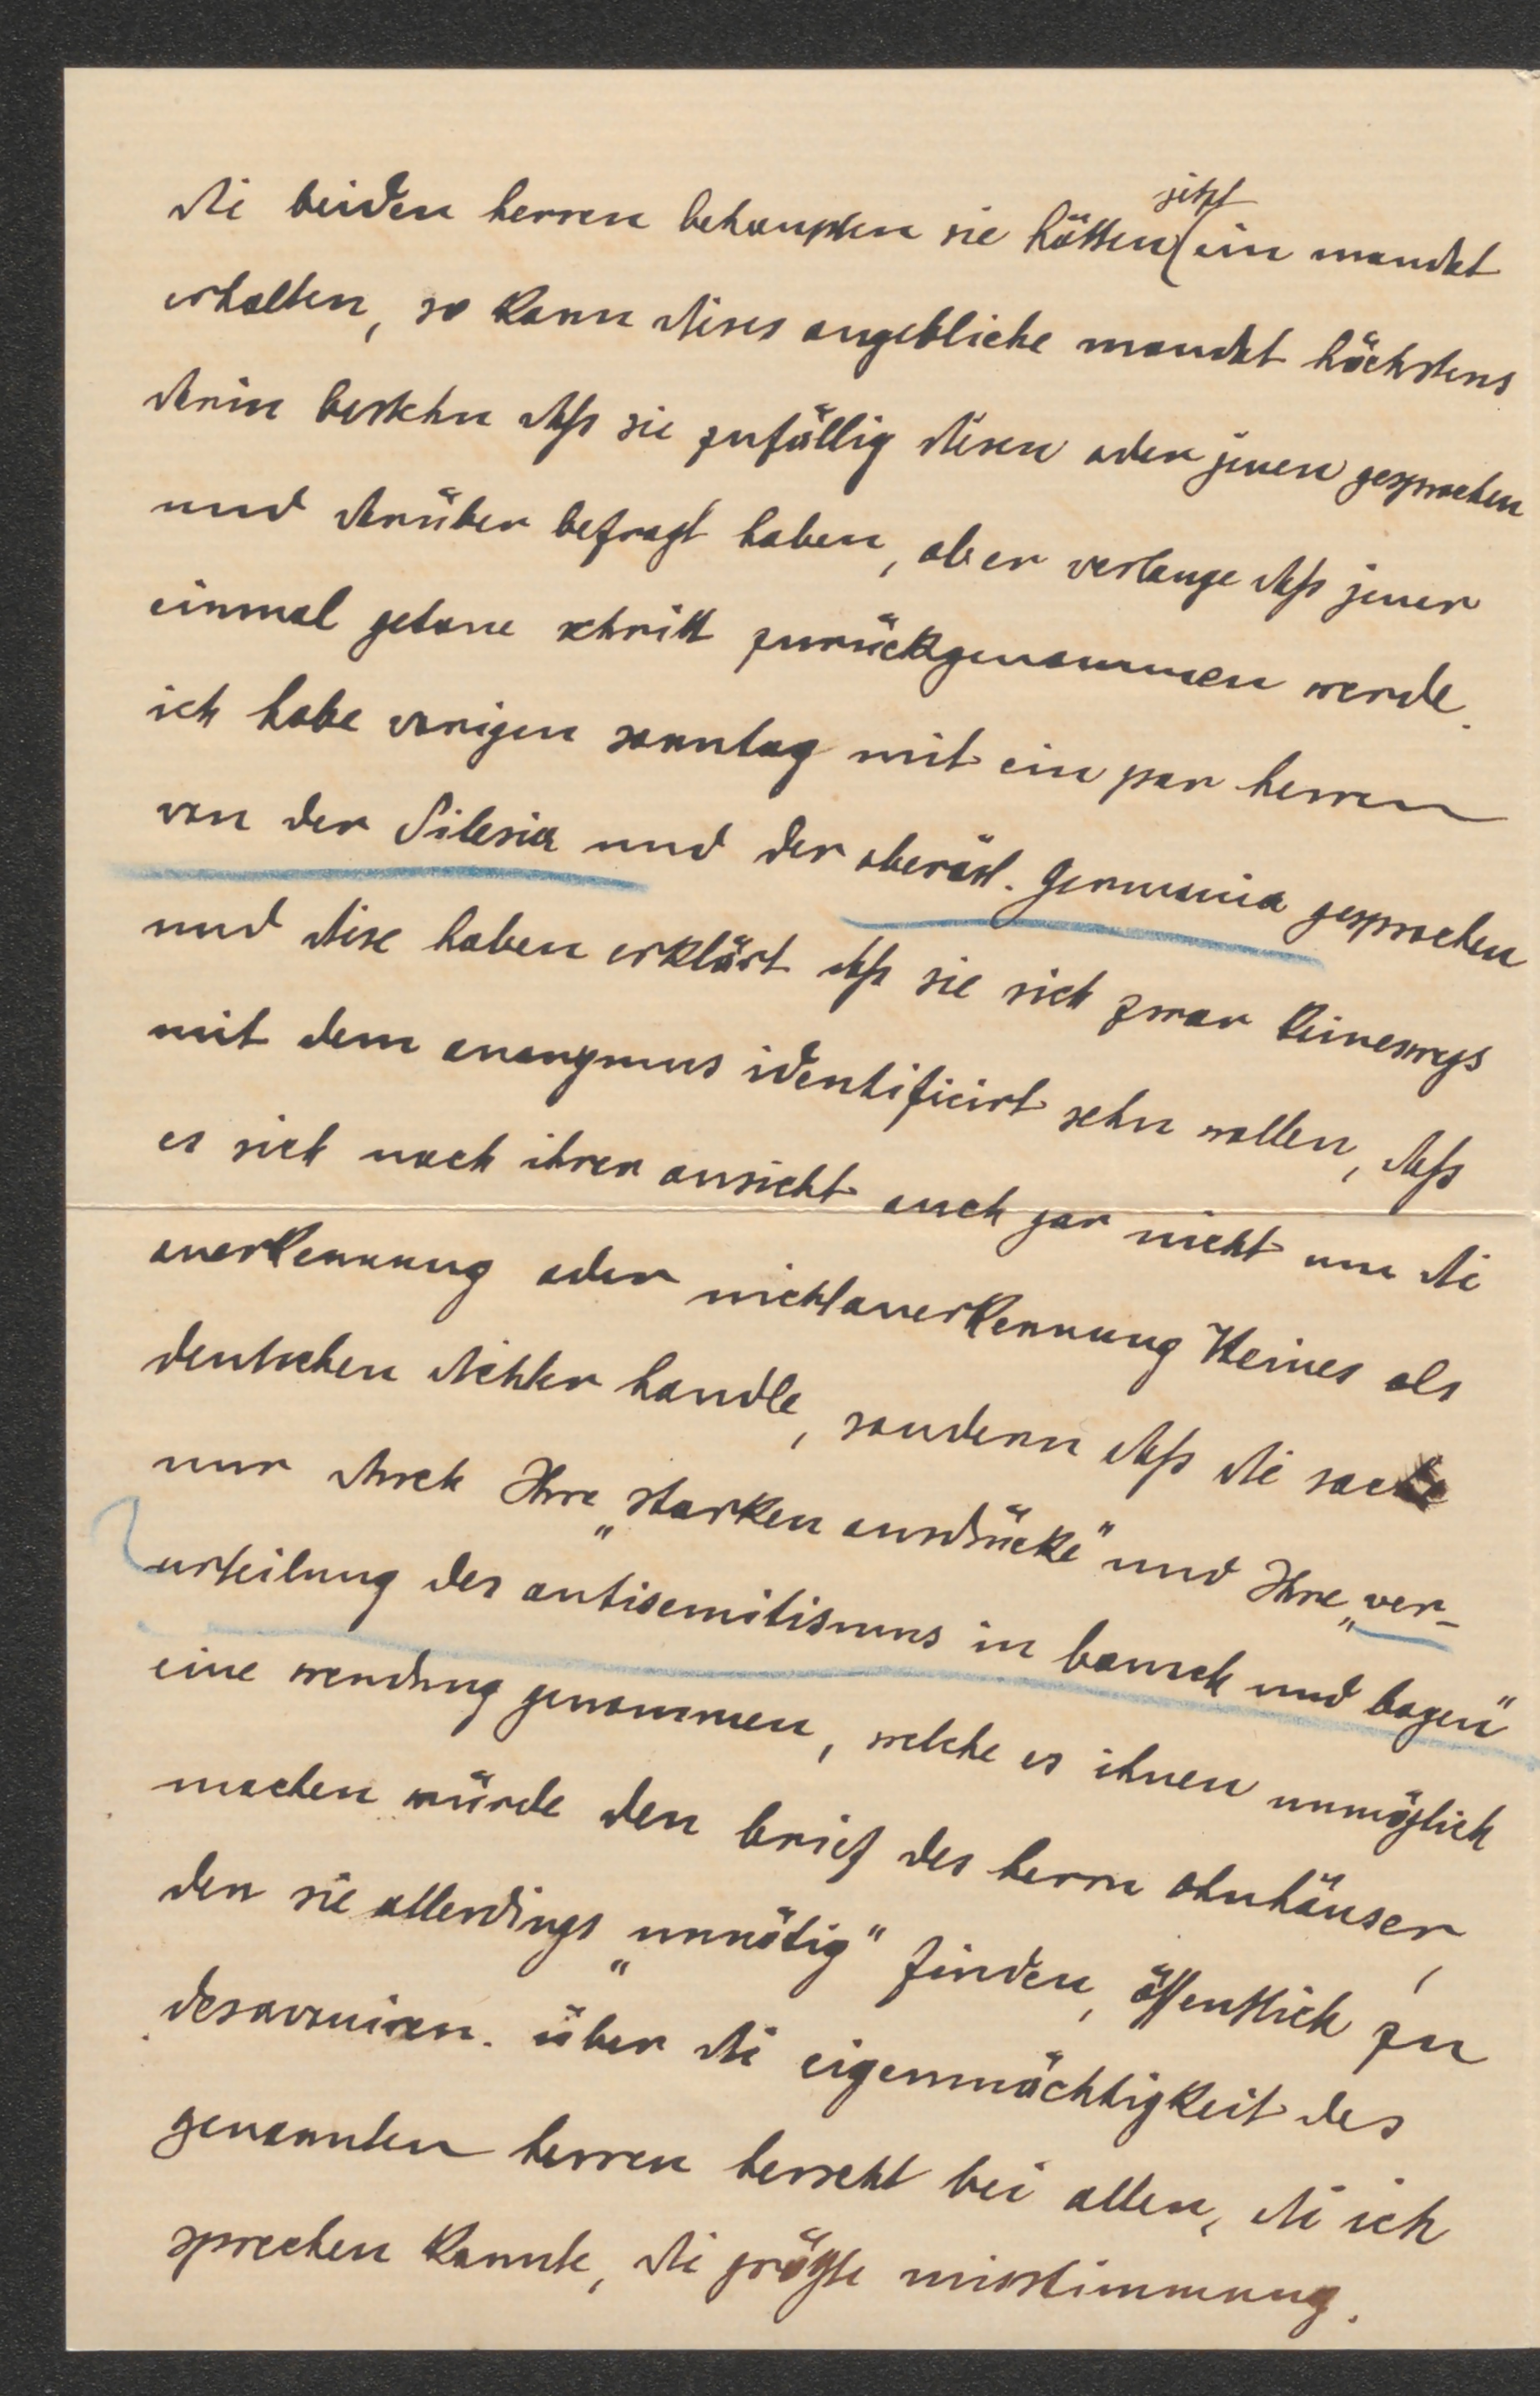 di beiden herren behaupten sie hätten jetzt ein mandat
erhalten, so kann dises angebliche mandat höchstens
darin bestehn daſs sie zufällig disen oder jenen gesprochen
und darüber befragt haben, ob er verlange daſs jener
einmal getane schritt zurückgenommen werde.
ich habe vorigen sonntag mit ein par herren
von der Silesia und der oberöst. Germania gesprochen
und dise haben erklärt daſs sie sich zwar keineswegs
mit dem anonymus identificirt sehn wollen, daſs
es sich nach ihrer ansicht auch gar nicht um di
anerkennung oder nichtanerkennung Heines als
deutschen dichter handle, sondern daſs di sache
nur durch Ihre „starken ausdrücke" und Ihre „ver-
urteilung des antisemitismus in bausch und bogen"
eine wendung genommen, welche es ihnen unmöglich
machen würde den brief des herrn ohnhäuser,
den sie allerdings „unnötig" finden, öffentlich zu
desavouiren. über di eigenmächtigkeit des
genannten herren herscht bei allen, di ich
sprechen konnte, di gröſste misstimmung.